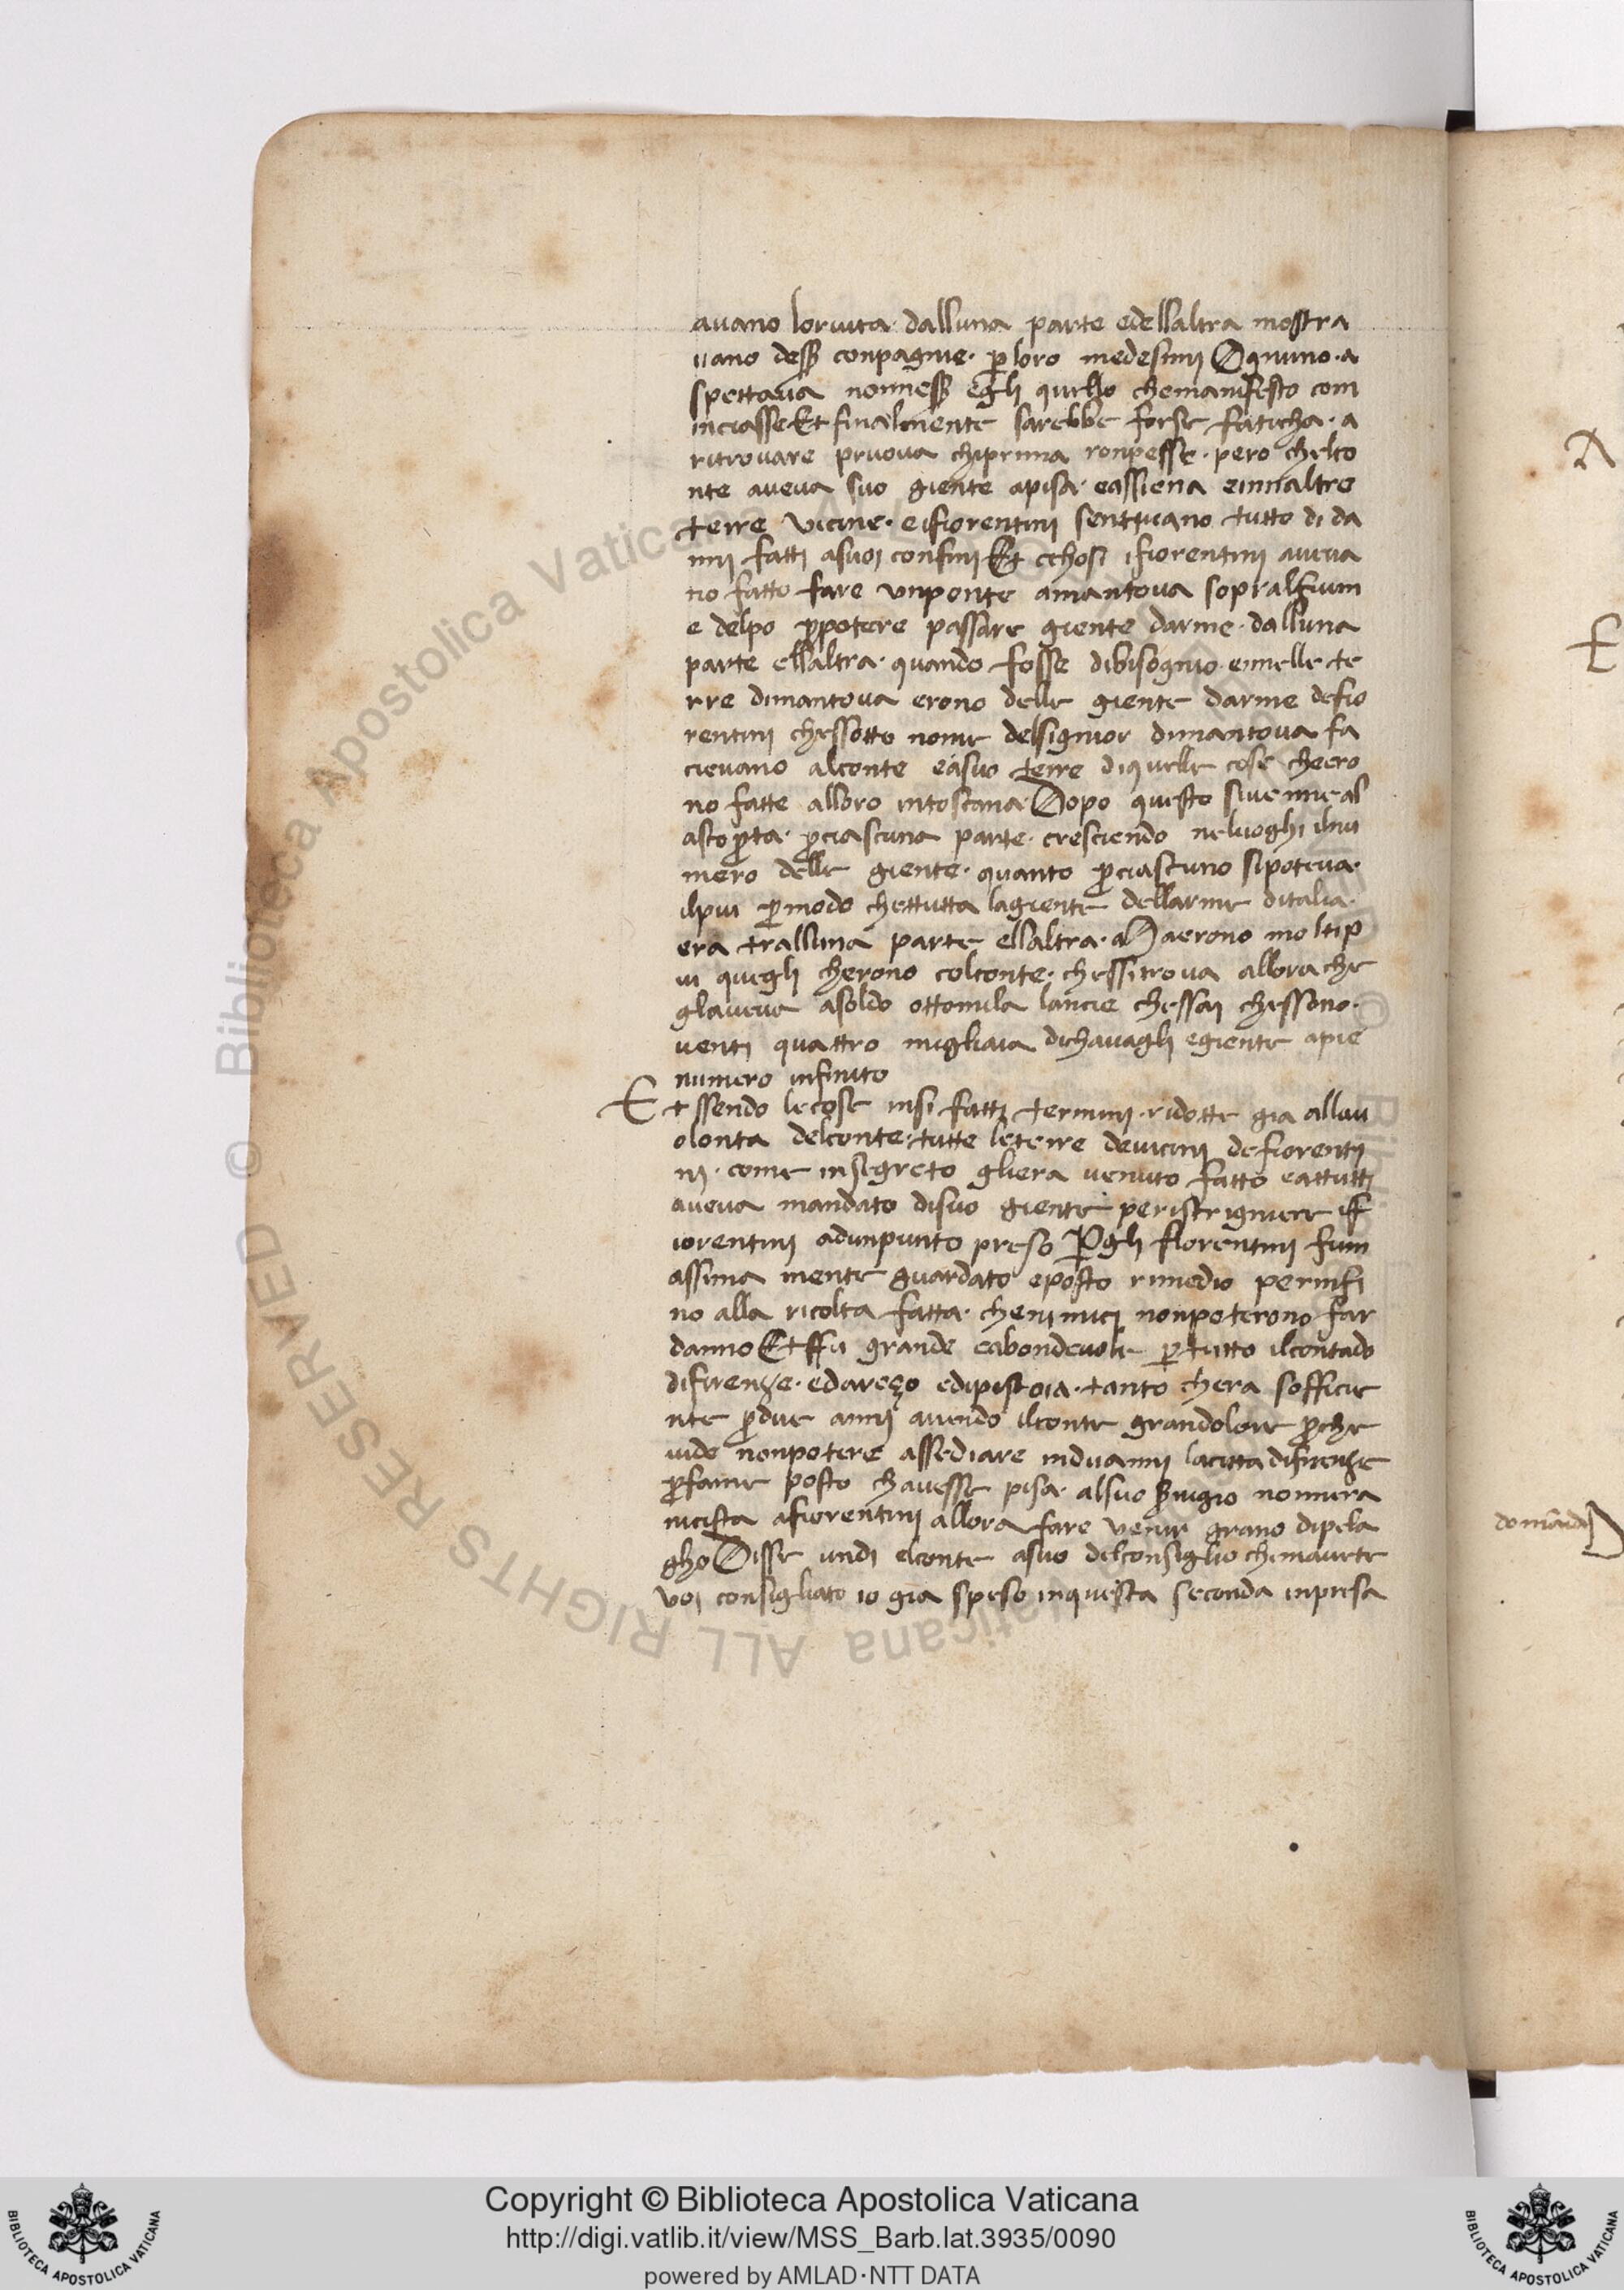 avano lor vita dalluna parte edellaltra mostra
uano dess͛ conpagnie · ꝑ loro medesimi Ognuno · a
spettava nonness͛ egli quello chemanifesto com
inciasse Et finalmente sarebbe forse faticha · a
ritrovare pruova chiprima ronpesse · pero chelco
nte aveva suo giente apisa · eassiena einnaltre
terre vicine · eifiorentini sentivano tutto di da
nni fatti asuoi confini Et cchosi ifiorentini aveva
no fatto fare vnponte amantova sopralfium
e delpo ꝑpotere passare giente darme · dalluna
parte ellaltra · quando fosse dibisognio · einelle te
rre dimantova erono delle giente darme defio
rentini chessotto nome delsignior dimantova fa
cievano alconte easuo terre diquelle cose cheero
no fatte alloro intoscana Dopo questo sivenne al
ascoꝑta · ꝑciascuna parte · cresciendo neluoghi ilnu
mero delle giente · quanto ꝑciascuno sipoteva ·
ilpiu ꝑ modo chettutta lagiente dellarme ditalia ·
era tralluna parte ellaltra · Ma erono moltip
iu quegli cherono colconte · chessitrova allora che
glaveva asoldo ottomila lancie chessai chessono ·
venti quattro migliaia dichavagli egiente apie
numero infinito
Et ssendo lecose insi fatti termini · ridotte gia allau
olonta delconte · tutte leterre devicini defiorenti
ni · come insegreto gliera venuto fatto eattutti
aveva mandato disuo giente peristrigniere iff
iorentini adunpunto preso Pegli florentini fum
assima mente guardato eposto rimedio perinfi
no alla ricolta fatta · chenimici nonpoterono far
danno Et ffu grande eabondevole ꝑ tutto ilcontado
difirenze · edareço edipistoia · tanto chera sofficie
nte ꝑdue anni avendo ilconte grandolore ꝑche
vide nonpotere assediare induanni lacitta difirenze
ꝑfame posto chavesse pisa · alsuo seruigio nonnera
nicista afiorentini allora fare venir grano dipela
gho Disse undi elconte asuo delconsiglio chemavete
voi consigliato io gia speso inquesta seconda inpresa
A
E
domāda
Copyright © Biblioteca Apostolica Vaticana
http://digi.vatlib.it/view/MSS_Barb.lat.3935/0090
powered by AMLAD·NTT DATA
BIBLIOTECA APOSTOLICA VATICANA
BIBLIOTECA APOSTOLICA VATICANA
© Biblioteca Apostolica Vaticana ALL RIGHTS RESERVED